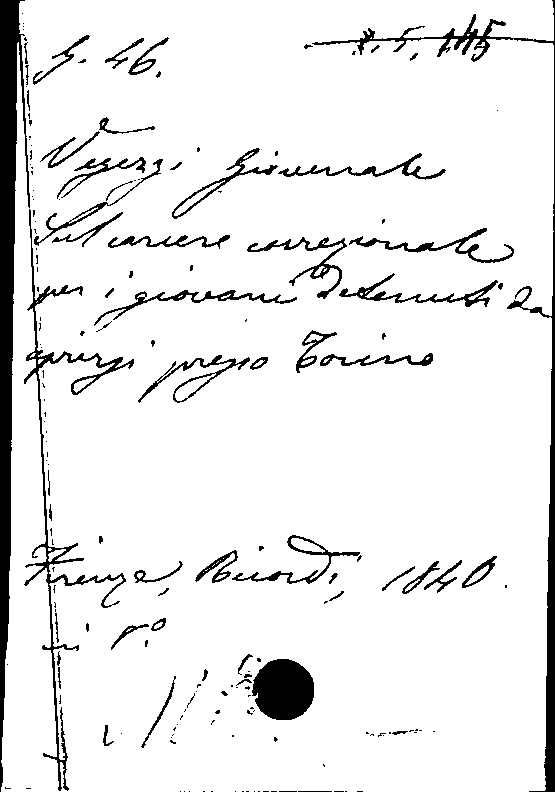 G. 46.
8. 5. 145
Vegezzi Giovenale
Sul carcere correzionale
per i giovani detenuti da
aprirsi presso Torino
Firenze, Ricordi, 1840.
in 8.º